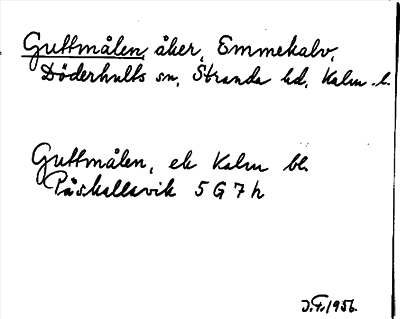 Guttmålen, åker, Emmekalv,
Döderhults sn, Stranda hd, Kalm. l.
Guttmålen, ek Kalm bl.
Påskallavik 5 G 7 h
J.F. 1956.